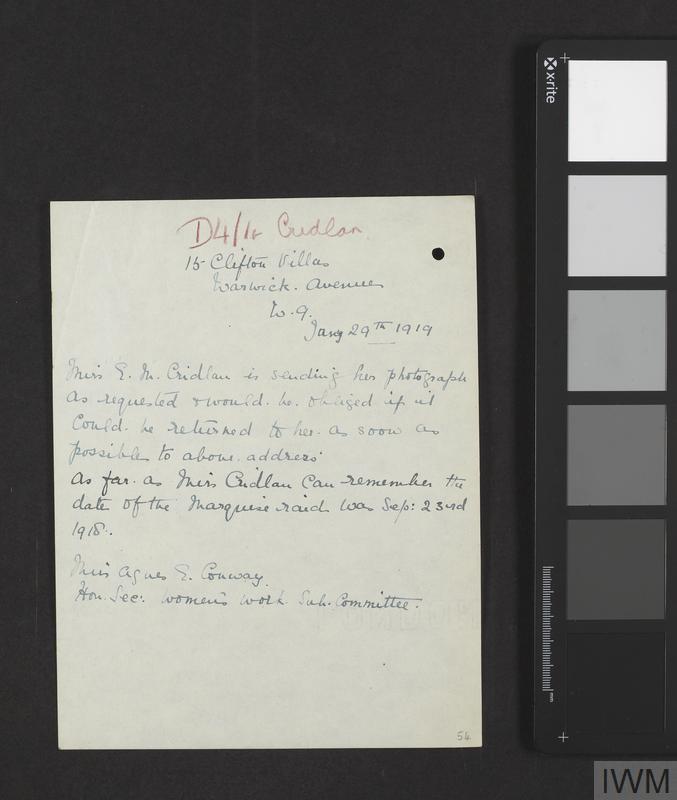 D4/1r Cridlan
15 Clifton Villas
Warwick. Avenue
W. 9.
Jany 29th 1919
Miss E. M. Cridlan is sending her photograph
as requested & would. be. obliged if it
could. be returned to her. as soon as
possible to above. address.
As far. as Miss Cridlan can remember the
date of the Marquise raid was Sep: 23rd
1918.
Miss Agnes E. Conway.
Hon. Sec: Women's Work Sub. Committee.
54
x·rite
mm
IWM